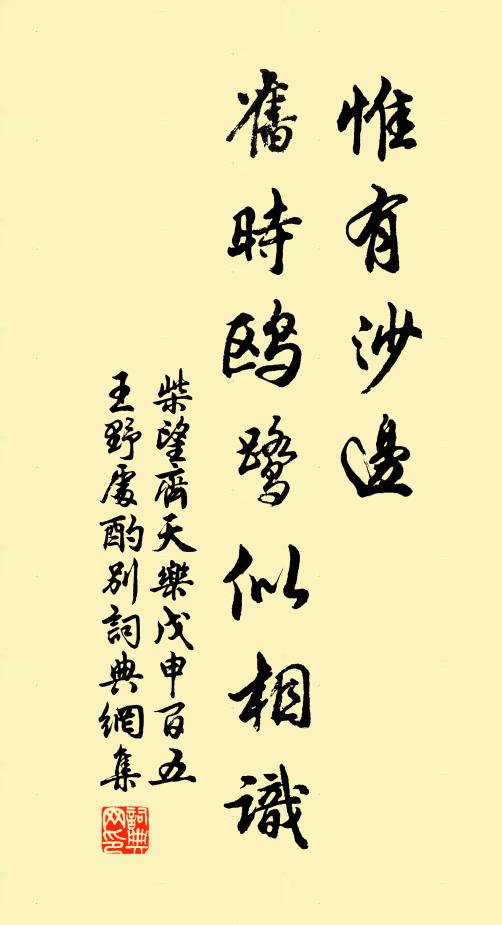 惟有沙邊
舊時鸥鹭似相識
柴望齊天樂戊申百五
王野處酌别詞典網集
詞典
网印